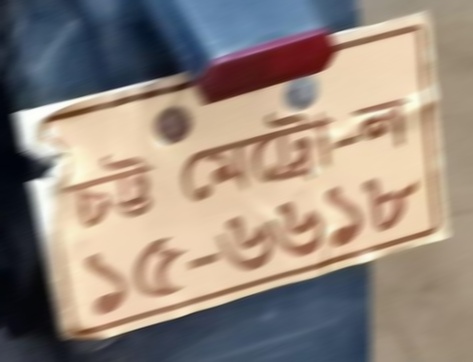 চট্ট মেট্রো-ল
১৫-৬৬১৮